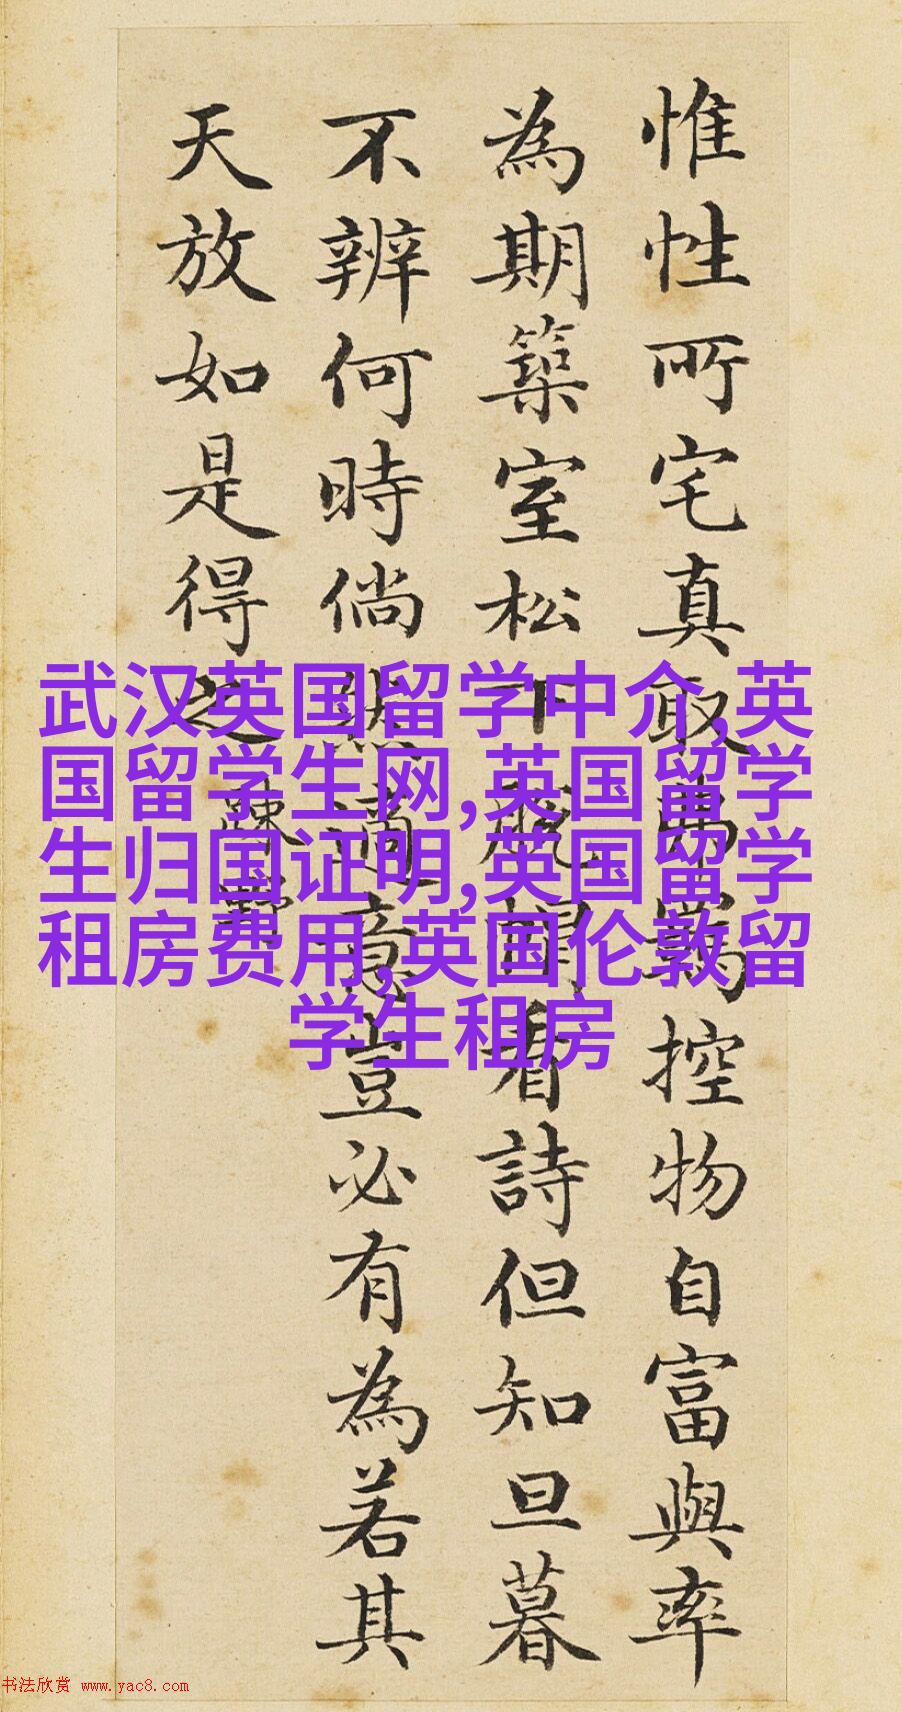 惟性所宅真取弗羈控物自富與率
為期築室松下脫帽看詩但知旦暮
不辨何時倘然適意豈必有為若其
天放如是得之 疎
武汉英国留学中介,英
国留学生网,英国留学
生归国证明,英国留学
租房费用,英国伦敦留
学生租房
书法欣赏 www.yac8.com